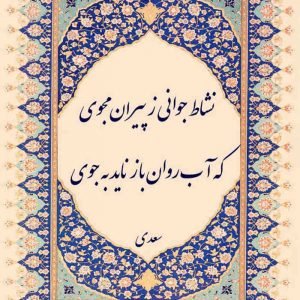 نشاط جوانی ز پیران مجوی
که آب روان باز ناید به جوی
سعدی